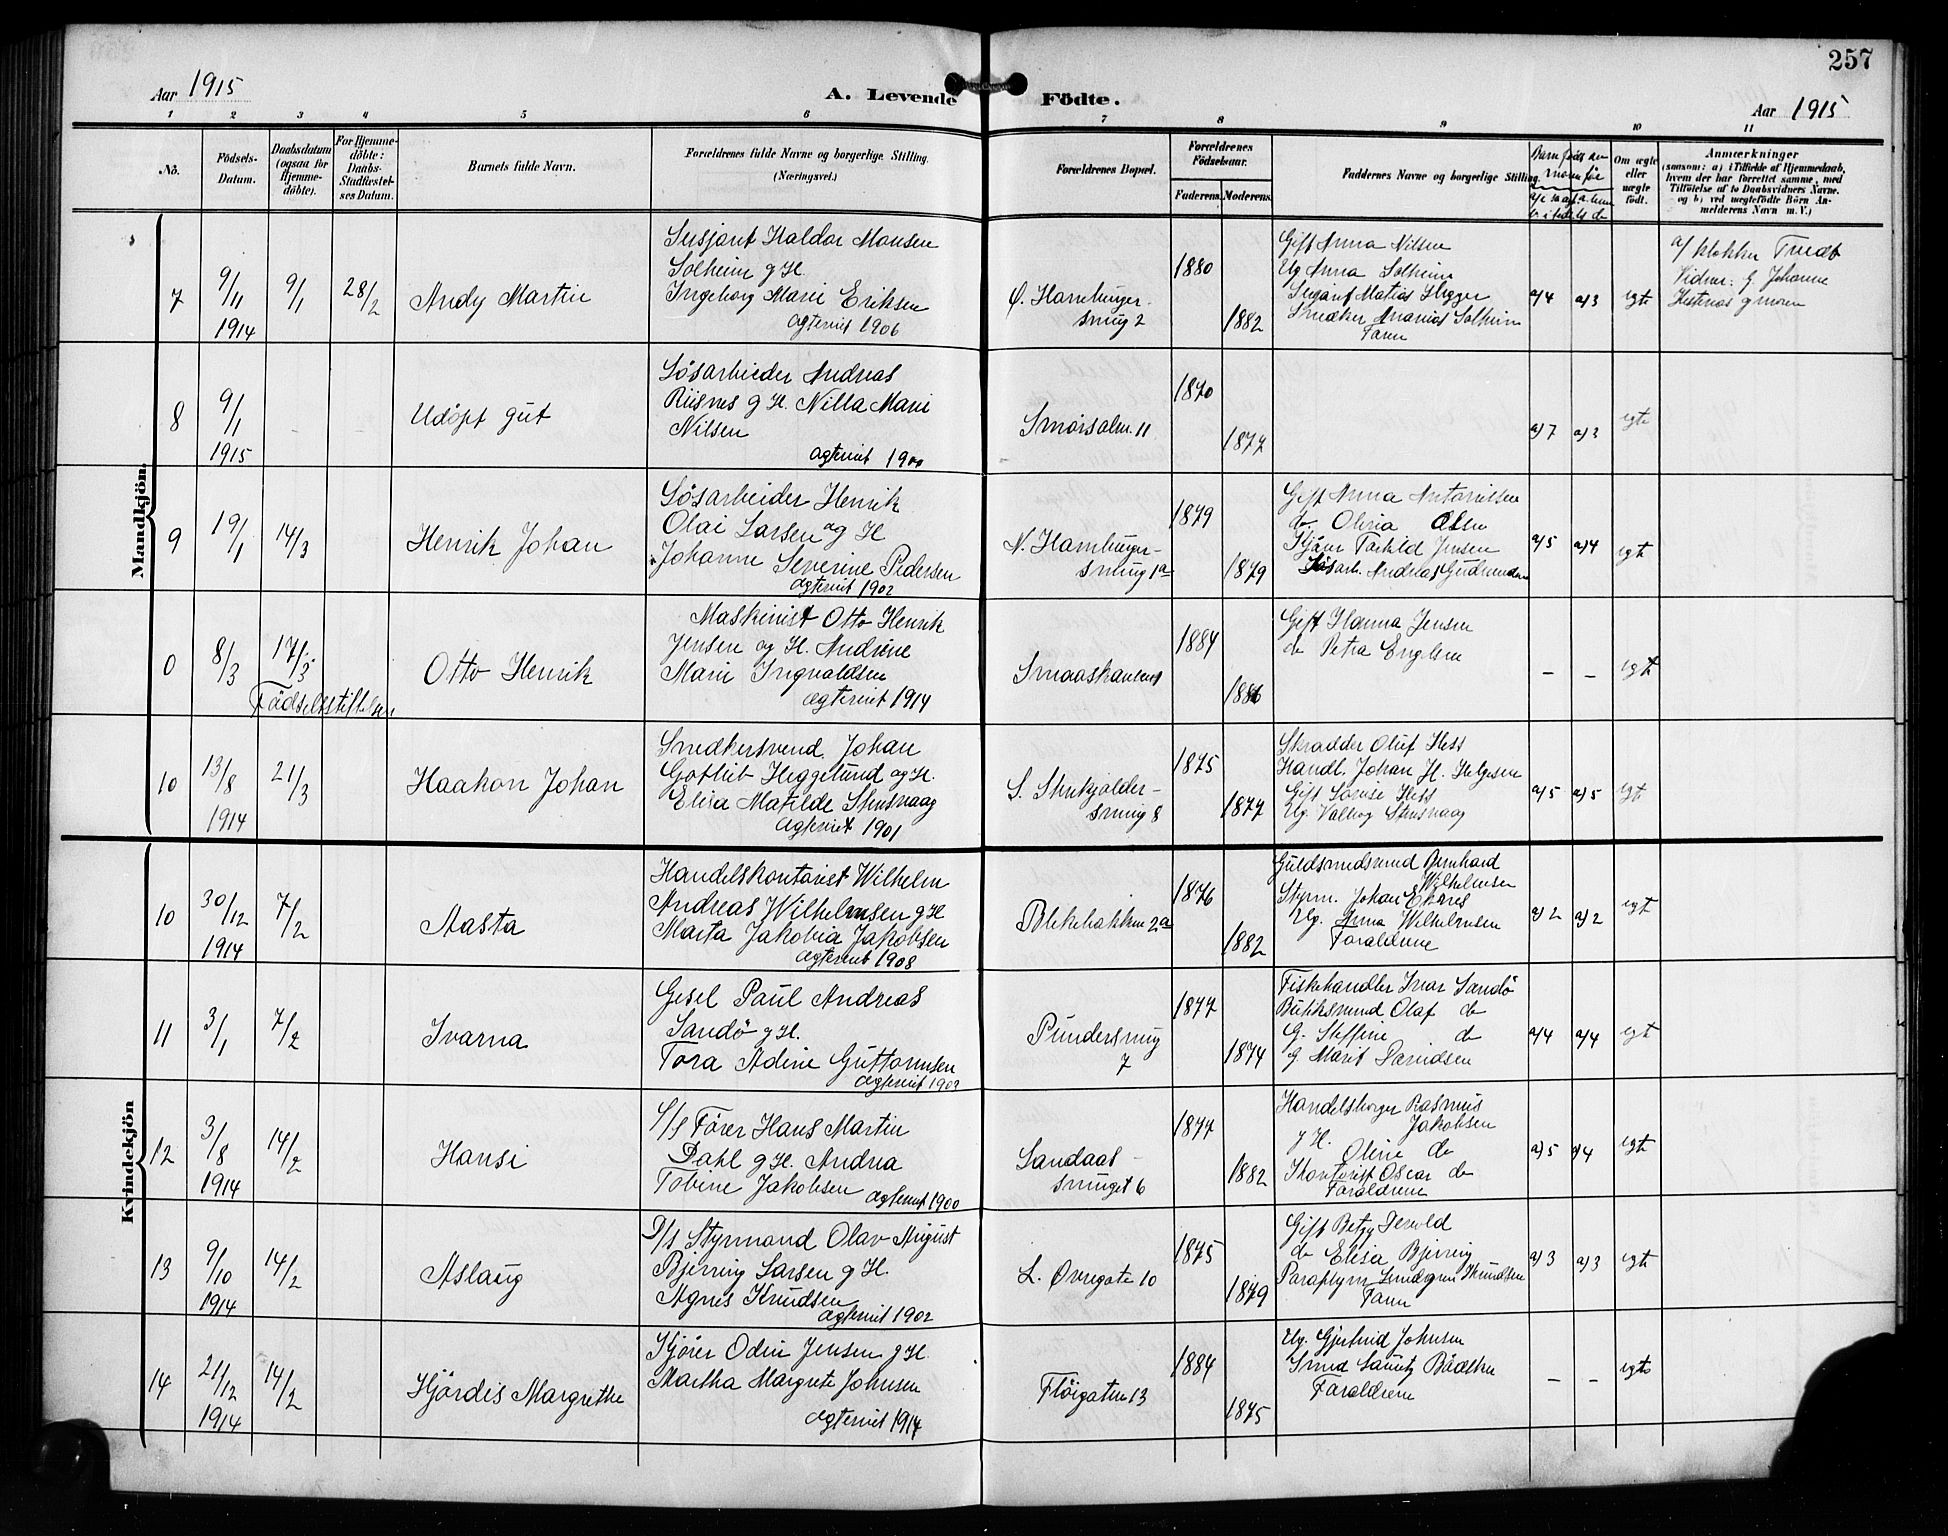 257
Aar 1915
A. Levende Födte.
Aar 1915
1 2 3 4 5 6 7 8 9 10 11
No.
Födsels-Datum.
Daabsdatum (ogsaa for Hjemme-döbte).
For Hjemme-döbte: Daabs-Stadfæstel-ses Datum.
Barnets fulde Navn.
Forældrenes fulde Navne og borgerlige Stilling. (Næringsvei.)
Forældrenes Bopæl.
Forældrenes Födselsaar.
Faderens. Moderens.
Faddernes Navne og borgerlige Stilling.
Om ægte eller uægte födt.
Anmærkninger
(saasom: a) i Tilfælde af Hjemmedaab, hvem der har forrettet samme, med Tilföielse af to Daabsvidners Navne. og b) ved uægtefödte Börn An-melderens Navn m. V.)
Mandkjön.
7
9/11 1914
9/1
28/2
Andy Martin
Sersjant Haldor Monsen
Solheim g H.
Ingeborg Marie Eriksen
ægteviet 1906
Ø. Hamburger-
smug 2
1880
1882
Gift Anna Nilsen
Ug Anna Solheim
Sersjant Matias
Snedker Ananias Solheim
Faren
a/4 a/3 egte
a/ klokker Tvedt
Vidner: G. Johanne
g moren
8
9/1 1915
Udöpt gut
Lösarbeider Andreas
Riisnes g H. Nilla Marie
Nilsen
ægteviet 1900
Smørsalm. 11
1870
1877
a/7 a/3 egte
9
19/1
14/3
Henrik Johan
Lösarbeider Henrik
Olai Larsen og H
Johanne Severine Pedersen
ægteviet 1902
N. Hamburger-
smug 1a
1879
1879
Gift Anna Antonielsen
do Olivia Olsen
Torkild Jensen
Lösarb. Andreas Gudmundsen
a/5 a/4 egte
0
8/3
17/3
Fødselsstiftelsen
Otto Henrik
Maskinist Otto Henrik
Jensen og H. Andrine
Marie Ingvaldsen
ægteviet 1914
1884
1886
Gift Hanna Jensen
do Petra Engelsen
– – egte
10
13/8 1914
21/3
Haakon Johan
Snedkersvend Johan
Gotlieb Heggelund og H.
Elisa Matilde Stensvaag
ægteviet 1901
S. Skuteviks
smug 8
1875
1877
Skradder Oluf Hess
Handl. Johan H. Helgesen
Gift Lovise Hess
Ug. Valborg Stensvaag
a/5 a/5 egte
Kvindekjön
10
30/12 1914
7/2
Aasta
Handelskontorist Wilhelm
Andreas Wilhelmsen g H
Marta Jakobia Jakobsen
ægteviet 1908
Blekebakken 2a
1876
1882
Guldsmedsvend Bernhard
Wilhelmsen
Styrm. Johan
Ug. Anna Wilhelmsen
Foraldrene
a/2 a/2 egte
11
3/1
7/2
Ivarna
Gesel Paul Andreas
Sandö g H.
Tora Adine Guttormsen
ægteviet 1902
Pundersmug
7
1877
1874
Fiskehandler Ivar Sandö
Olaf do
G. Steffine do
g. Marit
a/4 a/4 egte
12
3/8 1914
14/2
Hansi
S/S Fører Hans Martin
Dahl g H. Andrea
Tobine Jakobsen ægteviet 1900
Sandaas-
smuget 6
1877
1882
Handelsborger Rasmus
Jakobsen
g H. Oline do
Kontorist Oscar do
Foraldrene
a/5 a/4 egte
13
9/10 1914
14/2
Aslaug
D/S Styrmand Olav August
Bjerring Larsen g H.
Agnes Knudsen
ægteviet 1902
L. Øvregate 10
1875
1879
Gift Betzy
do Elisa Bjerring
Knudsen
Faren
a/3 a/3 egte
14
21/12 1914
14/2
Hjördis Margrethe
Kjører Odin Jensen g H.
Martha Margrete Johnsen
ægteviet 1914
Fløigaten 13
1884
1875
Ug. Gjertrud Johnsen
Smed Lauritz
Foraldrene
– – egte